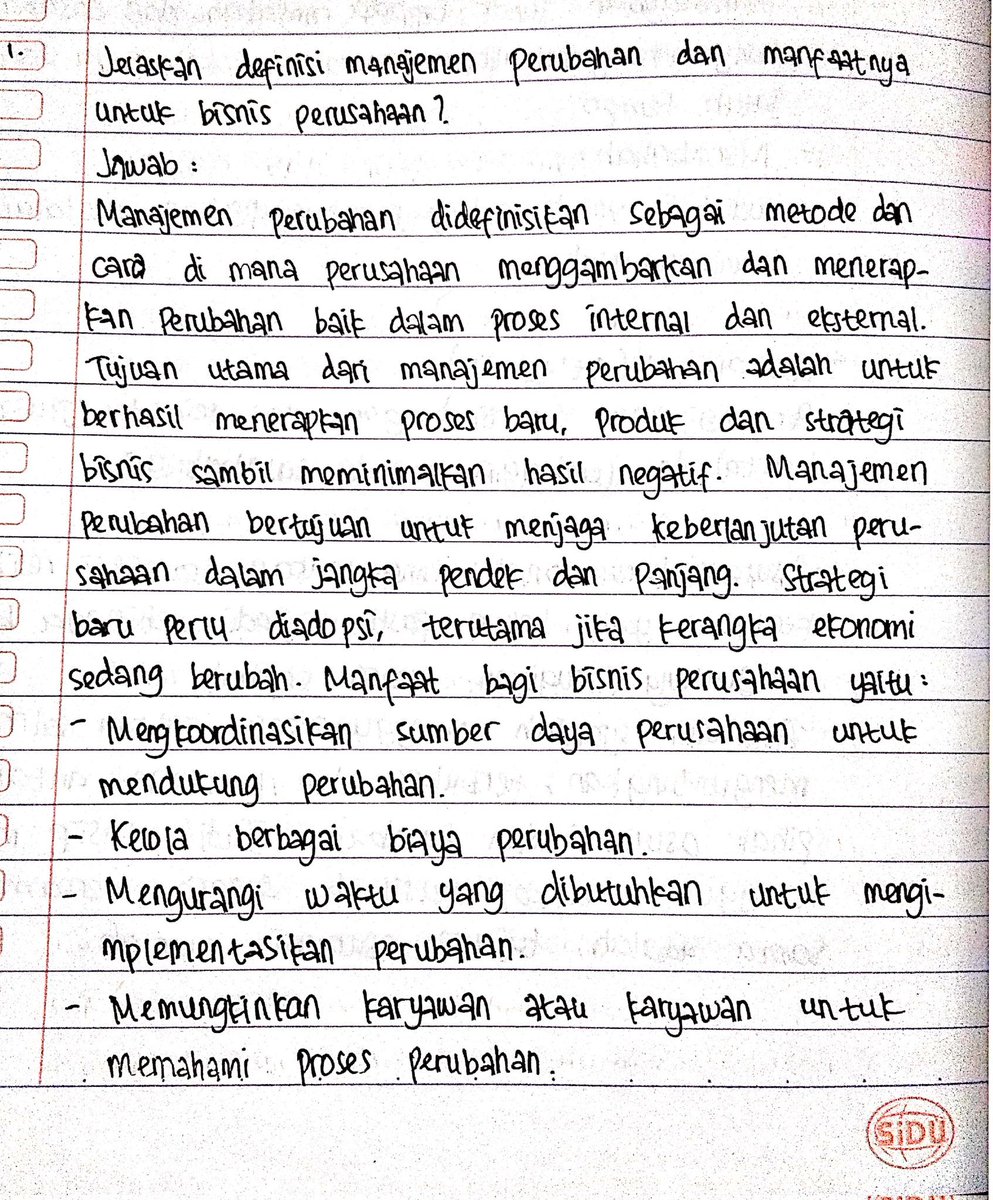 1. Jelaskan definisi manajemen perubahan dan manfaatnya
untuk bisnis perusahaan?
Jawab :
Manajemen perubahan didefinisikan sebagai metode dan
cara di mana perusahaan menggambarkan dan menerap-
kan perubahan baik dalam proses internal dan eksternal.
Tujuan utama dari manajemen perubahan adalah untuk
berhasil menerapkan proses baru, produk dan strategi
bisnis sambil meminimalkan hasil negatif. Manajemen
perubahan bertujuan untuk menjaga keberlanjutan peru-
sahaan dalam jangka pendek dan panjang. Strategi
baru perlu diadopsi, terutama jika kerangka ekonomi
sedang berubah. Manfaat bagi bisnis perusahaan yaitu :
- Mengkoordinasikan sumber daya perusahaan untuk
mendukung perubahan.
- Kelola berbagai biaya perubahan.
- Mengurangi waktu yang dibutuhkan untuk mengi-
mplementasikan perubahan.
- Memungkinkan karyawan atau karyawan untuk
memahami proses perubahan.
SiDU